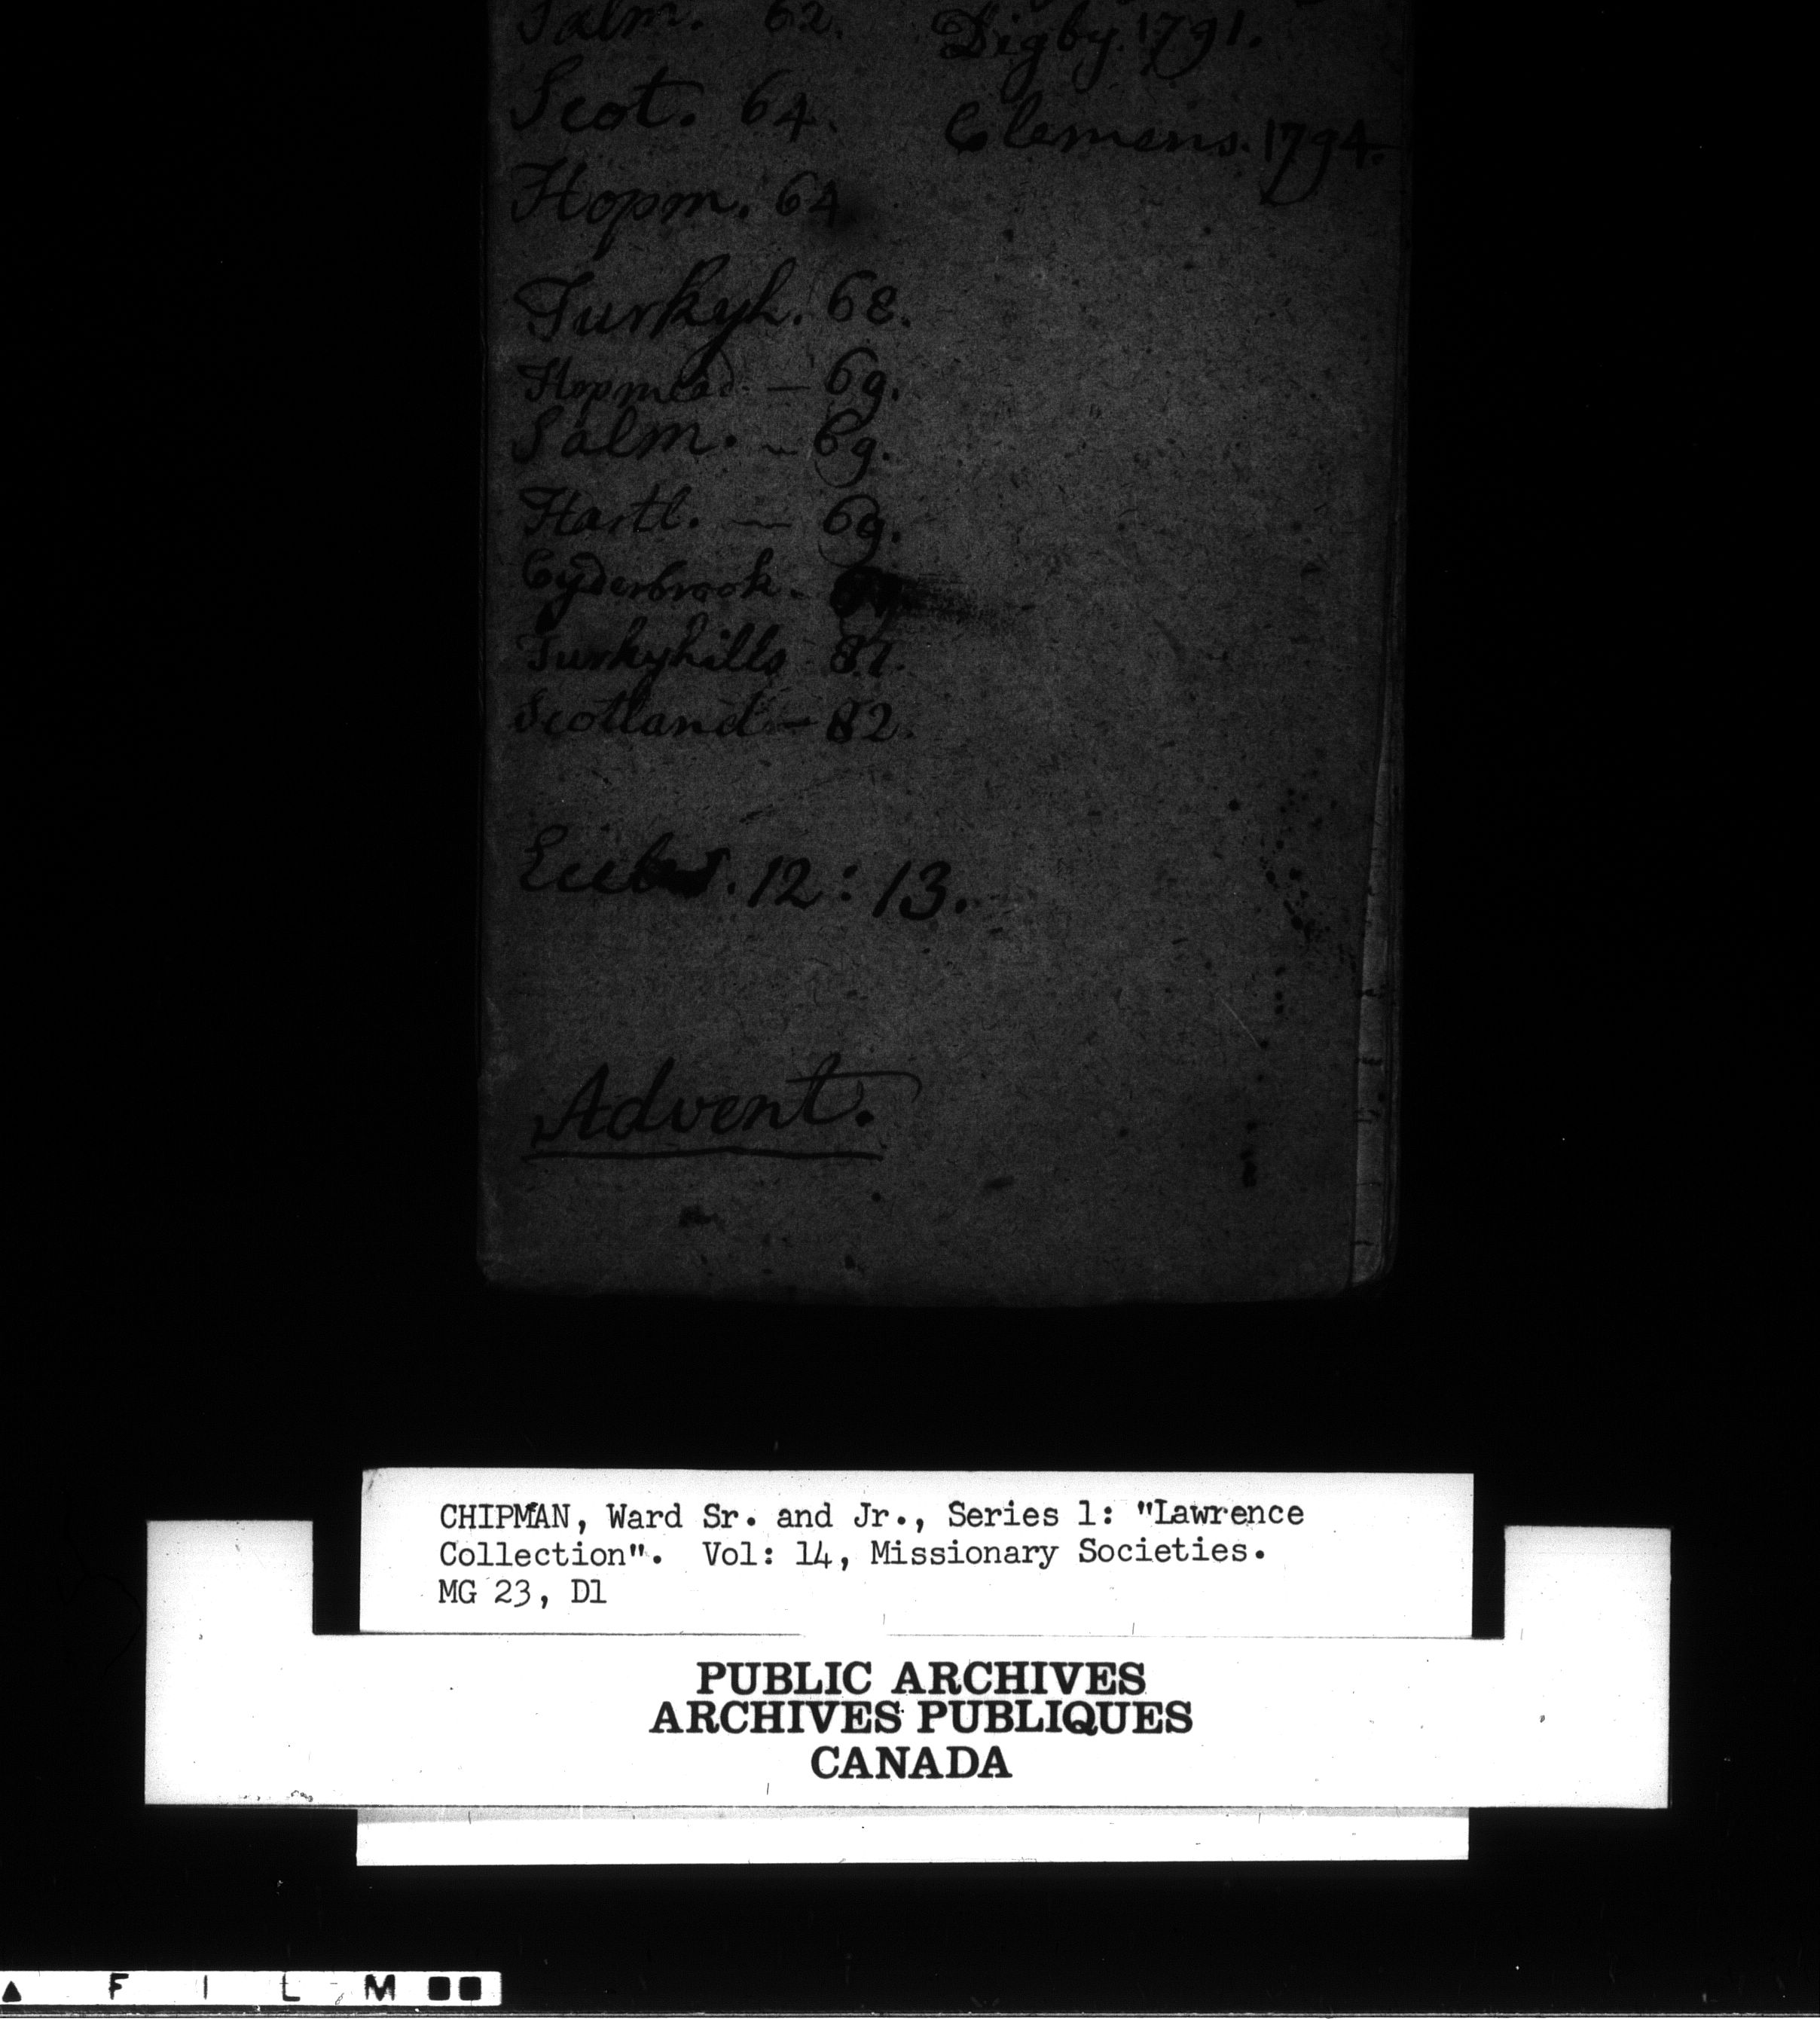 Salm. 62. Digby. 1791.
Scot. 64. Clemens. 1794.
Hopm. 64
Turkyh. 68.
Hopmead. — 69.
Salm. — 69.
Hartl. — 69.
Cyderbrook.
Turkyhills 81.
Scotland — 82.
12 : 13.
Advent.
CHIPMAN, Ward Sr. and Jr., Series 1: "Lawrence
Collection". Vol: 14, Missionary Societies.
MG 23, D1
PUBLIC ARCHIVES
ARCHIVES PUBLIQUES
CANADA
FILM